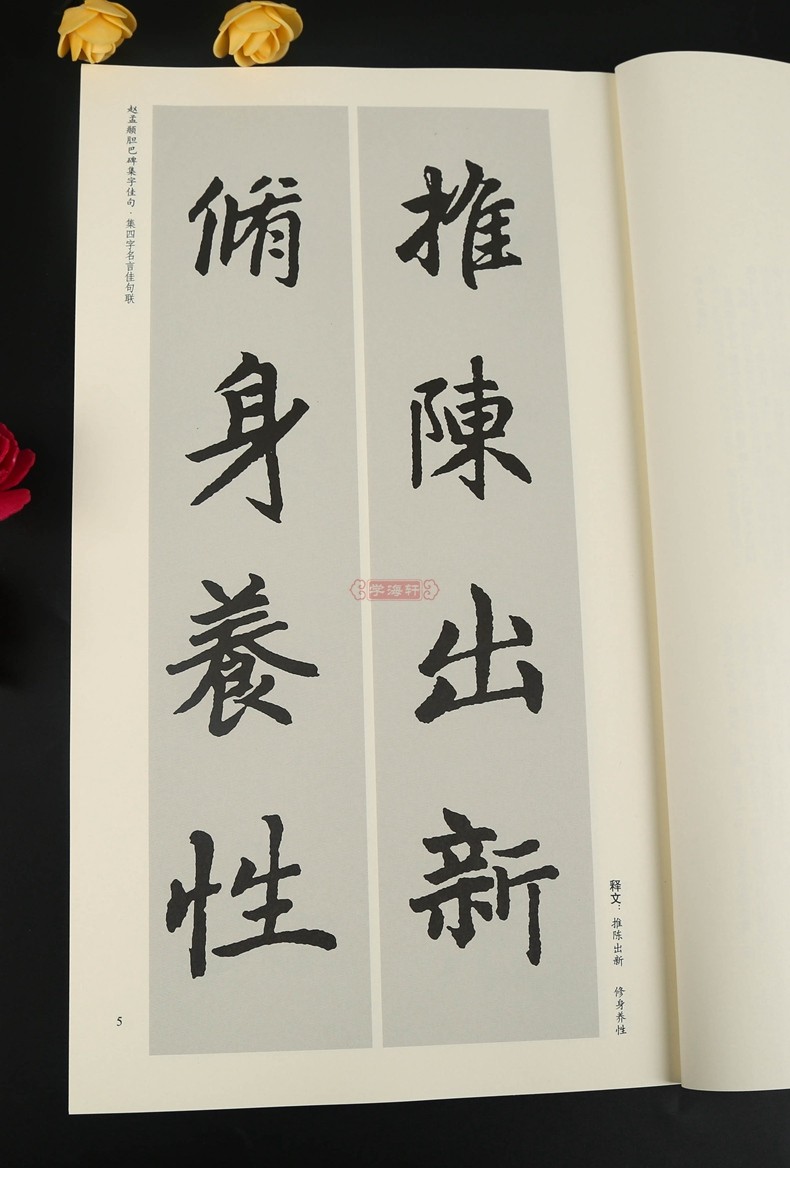 推陳出新
脩身養性
释文：推陈出新 修身养性
赵孟頫胆巴碑集字佳句·集四字名言佳句联
5
学海轩